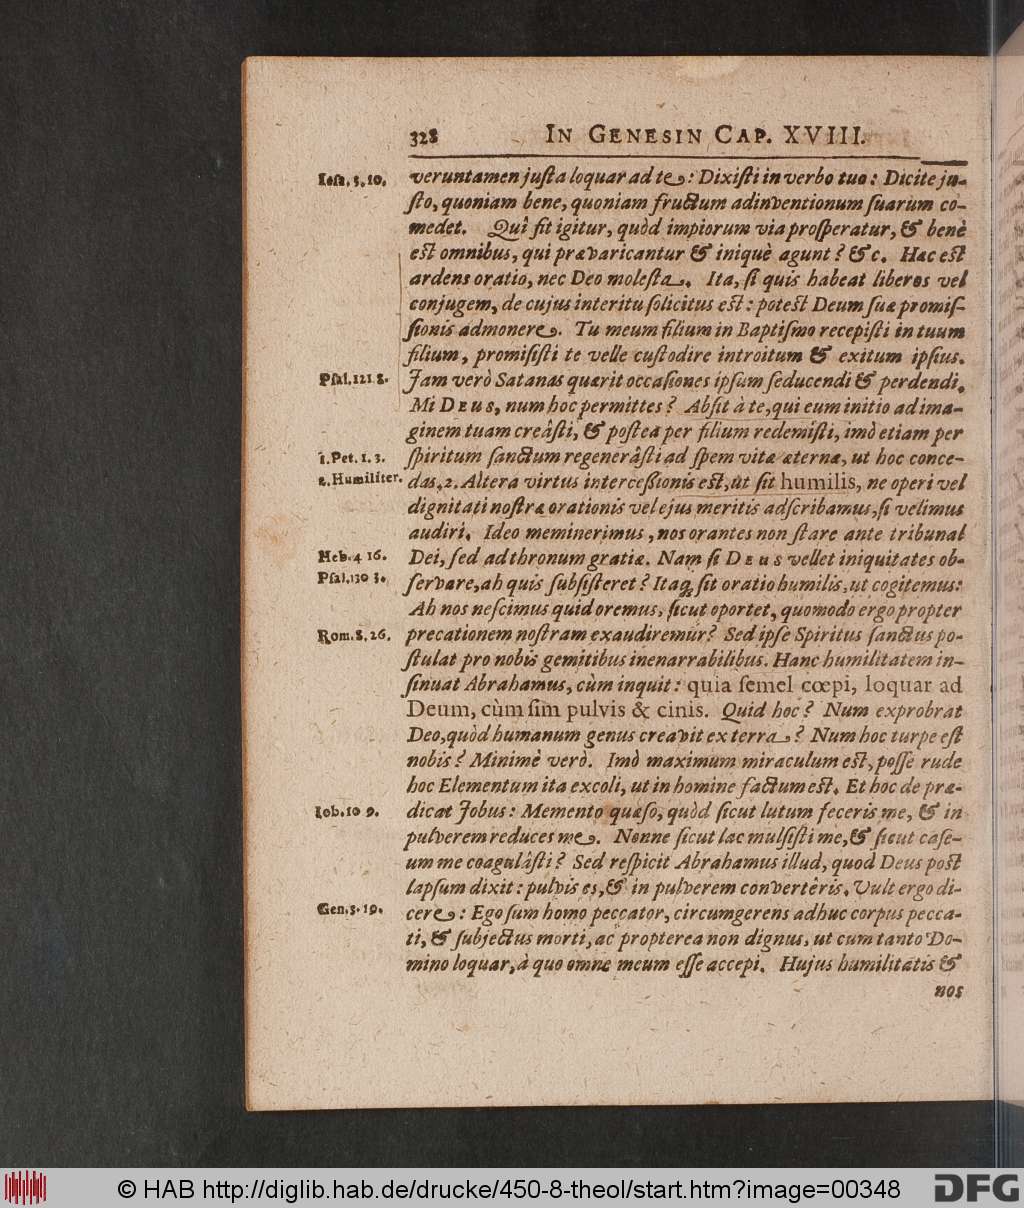 328 IN GENESIN CAP. XVIII.
Iesa. 3. 10. veruntamen justa loquar ad te: Dixisti in verbo tuo: Dicite ju-
sto, quoniam bene, quoniam fructum adinventionum suarum co-
medet. Quî fit igitur, quòd impiorum via prosperatur, & benè
est omnibus, qui prævaricantur & iniquè agunt? &c. Hæc est
ardens oratio, nec Deo molesta. Ita, si quis habeat liberos vel
conjugem, de cujus interitu solicitus est: potest Deum suæ promis-
sionis admonere. Tu meum filium in Baptismo recepisti in tuum
filium, promisisti te velle custodire introitum & exitum ipsius.
Psal. 121 8. Jam verò Satanas quærit occasiones ipsum seducendi & perdendi.
Mi DEUS, num hoc permittes? Absit à te, qui eum initio ad ima-
ginem tuam creâsti, & postea per filium redemisti, imò etiam per
1. Pet. 1. 3. spiritum sanctum regenerâsti ad spem vitæ æternæ, ut hoc conce-
2. Humiliter. das. 2. Altera virtus intercessionis est, ut sit humilis, ne operi vel
dignitati nostræ orationis vel ejus meritis adscribamus, si velimus
audiri. Ideo meminerimus, nos orantes non stare ante tribunal
Heb. 4 16. Dei, sed ad thronum gratiæ. Nam si DEUS vellet iniquitates ob-
Psal. 130 3. servare, ah quis subsisteret? Itaq; sit oratio humilis, ut cogitemus:
Ah nos nescimus quid oremus, sicut oportet, quomodo ergo propter
Rom. 8. 26. precationem nostram exaudiremur? Sed ipse Spiritus sanctus po-
stulat pro nobis gemitibus inenarrabilibus. Hanc humilitatem in-
sinuat Abrahamus, cùm inquit: quia semel cœpi, loquar ad
Deum, cùm sim pulvis & cinis. Quid hoc? Num exprobrat
Deo, quòd humanum genus creavit ex terra? Num hoc turpe est
nobis? Minimè verò. Imò maximum miraculum est, posse rude
hoc Elementum ita excoli, ut in homine factum est. Et hoc de præ-
Iob. 10 9. dicat Jobus: Memento quæso, quòd sicut lutum feceris me, & in
pulverem reduces me. Nonne sicut lac mulsisti me, & sicut case-
um me coagulâsti? Sed respicit Abrahamus illud, quod Deus post
lapsum dixit: pulvis es, & in pulverem convertêris. Vult ergo di-
Gen. 3. 19. cere: Ego sum homo peccator, circumgerens adhuc corpus pecca-
ti, & subjectus morti, ac propterea non dignus, ut cum tanto Do-
mino loquar, à quo omne meum esse accepi. Hujus humilitatis &
nos
© HAB http://diglib.hab.de/drucke/450-8-theol/start.htm?image=00348 DFG